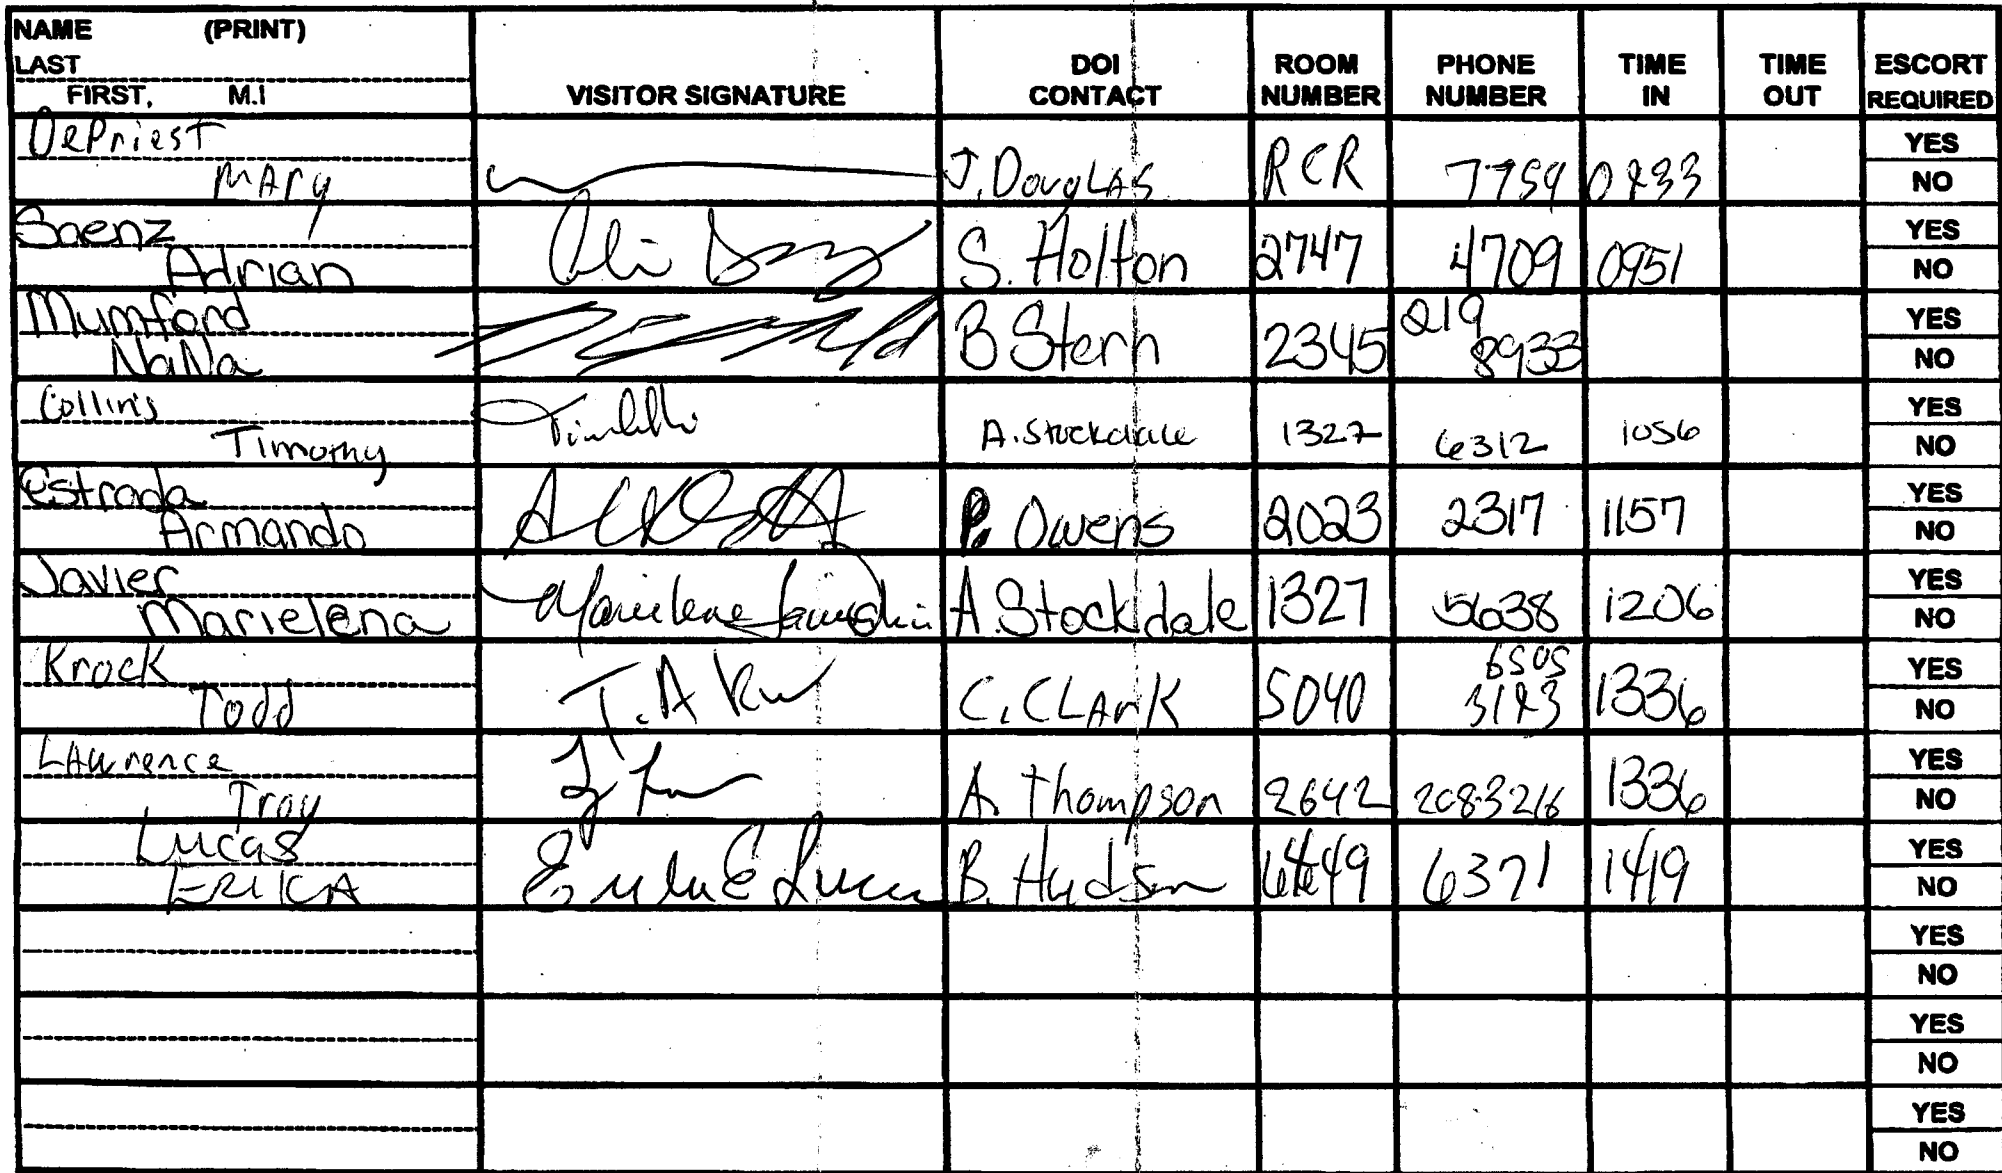 NAME (PRINT)
LAST
FIRST, M.I
VISITOR SIGNATURE
DOI CONTACT
ROOM NUMBER
PHONE NUMBER
TIME IN
TIME OUT
ESCORT REQUIRED
DePriest
MARY
J. DougLAS RCR 7759 0833
YES
NO
Saenz
Adrian
S. Holton 2747 4709 0951
YES
NO
Mumford
NaNa
B Stern 2345 219 8933
YES
NO
Collins
Timothy
A. Stockdale 1327 6312 1056
YES
NO
Estrada
Armando
P. Owens 2023 2317 1157
YES
NO
Javier
Marielena
A. Stockdale 1327 5638 1206
YES
NO
Krock
Todd
T. A
C. CLArK 5040 6505 3183 1336
YES
NO
LAwrence
Troy
A. Thompson 2642 2083216 1336
YES
NO
Lucas
ERIKA
Erika E Lucas
B. Hudson 6371 1419
YES
NO
YES
NO
YES
NO
YES
NO